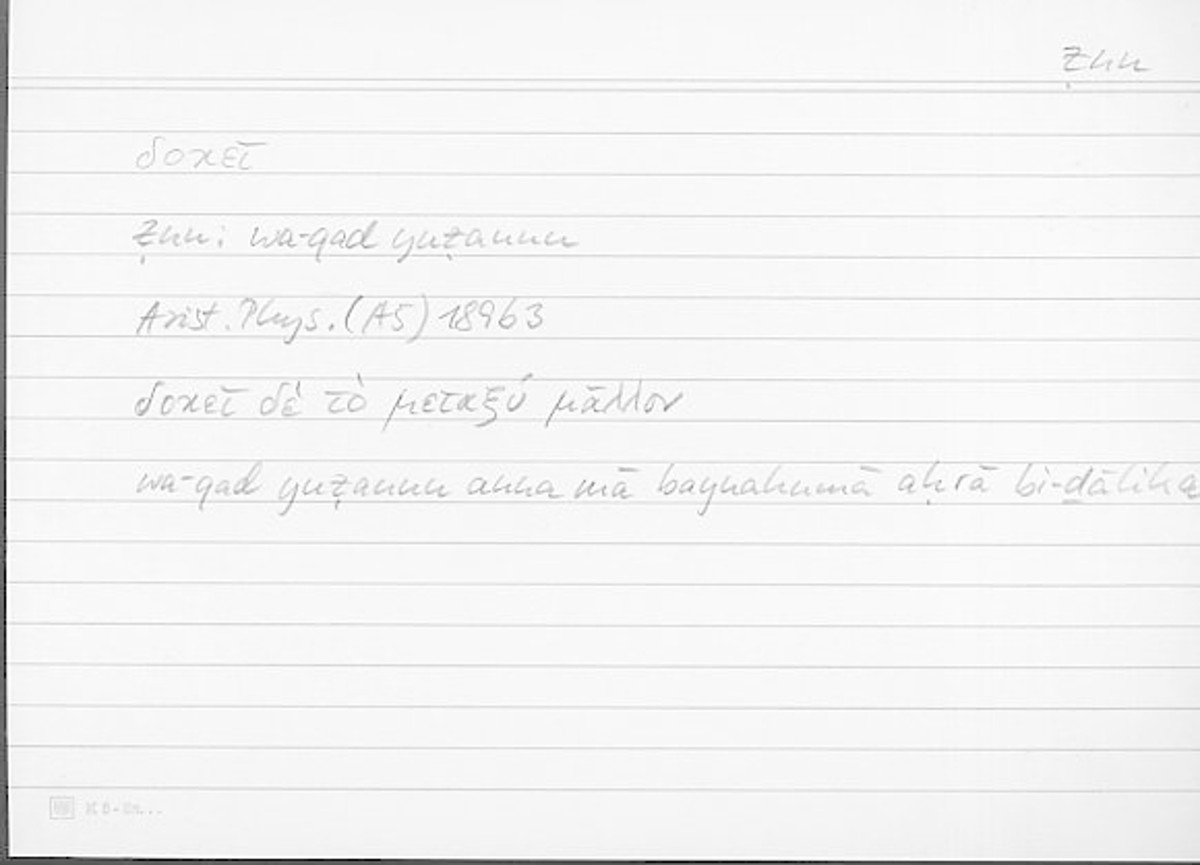 ẓnn
δοκεῖ
ẓnn: wa-qad yuẓannu
Arist. Phys. (A5) 189b3
δοκεῖ δὲ τὸ μεταξύ μᾶλλον
wa-qad yuẓannu anna mā baynahumā aḥrā bi-ḏālika